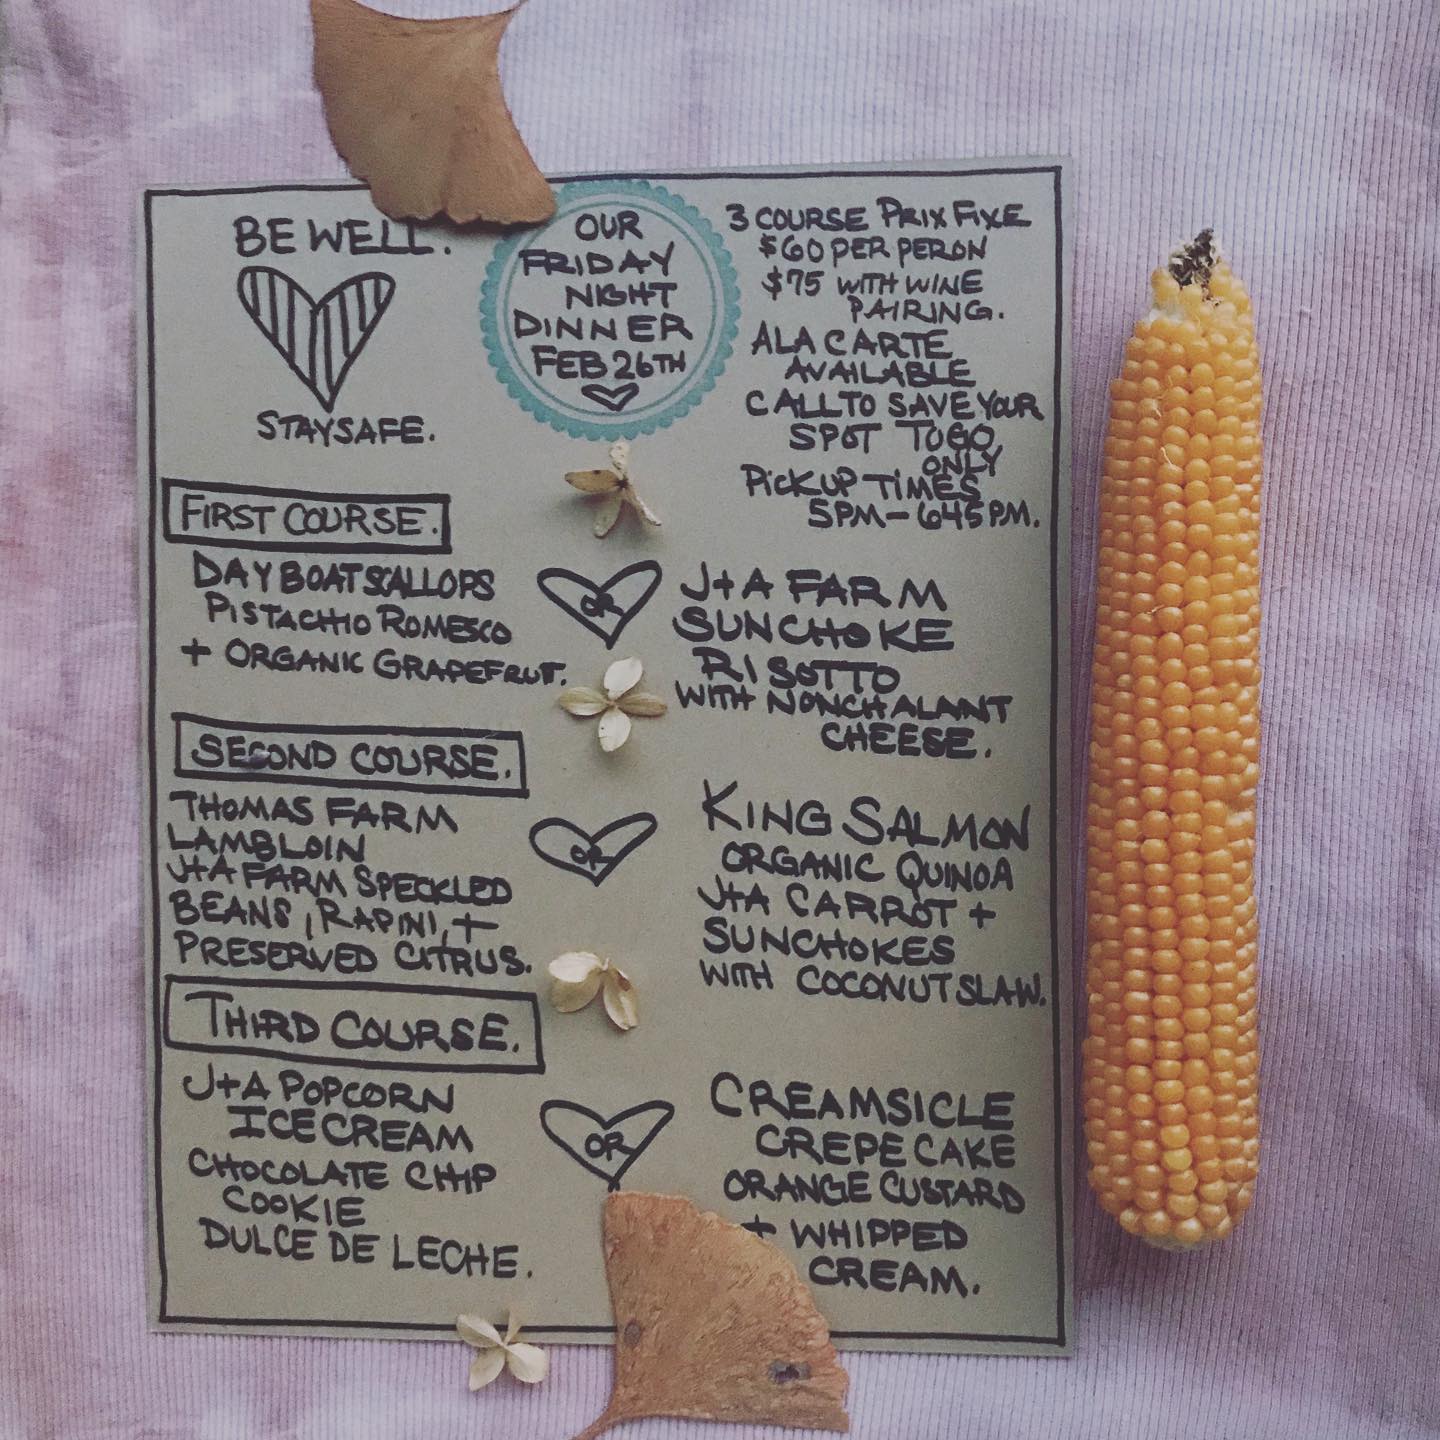 BE WELL.
STAY SAFE.
OUR
FRIDAY
NIGHT
DINNER
FEB 26TH
3 COURSE PRIX FIXE
$60 PER PERON
$75 WITH WINE
PAIRING.
ALA CARTE
AVAILABLE
CALL TO SAVE YOUR
SPOT TO GO
ONLY
PICKUP TIMES
5PM - 645PM.
FIRST COURSE.
DAY BOAT SCALLOPS
PISTACHIO ROMESCO
+ ORGANIC GRAPEFRUT.
OR
J+A FARM
SUNCHOKE
RISOTTO
WITH NONCHALANT
CHEESE.
SECOND COURSE.
THOMAS FARM
LAMB LOIN
J+A FARM SPECKLED
BEANS, RAPINI, +
PRESERVED CITRUS.
OR
KING SALMON
ORGANIC QUINOA
J+A CARROT +
SUNCHOKES
WITH COCONUT SLAW.
THIRD COURSE.
J+A POPCORN
ICE CREAM
CHOCOLATE CHIP
COOKIE
DULCE DE LECHE.
OR
CREAMSICLE
CREPE CAKE
ORANGE CUSTARD
+ WHIPPED
CREAM.